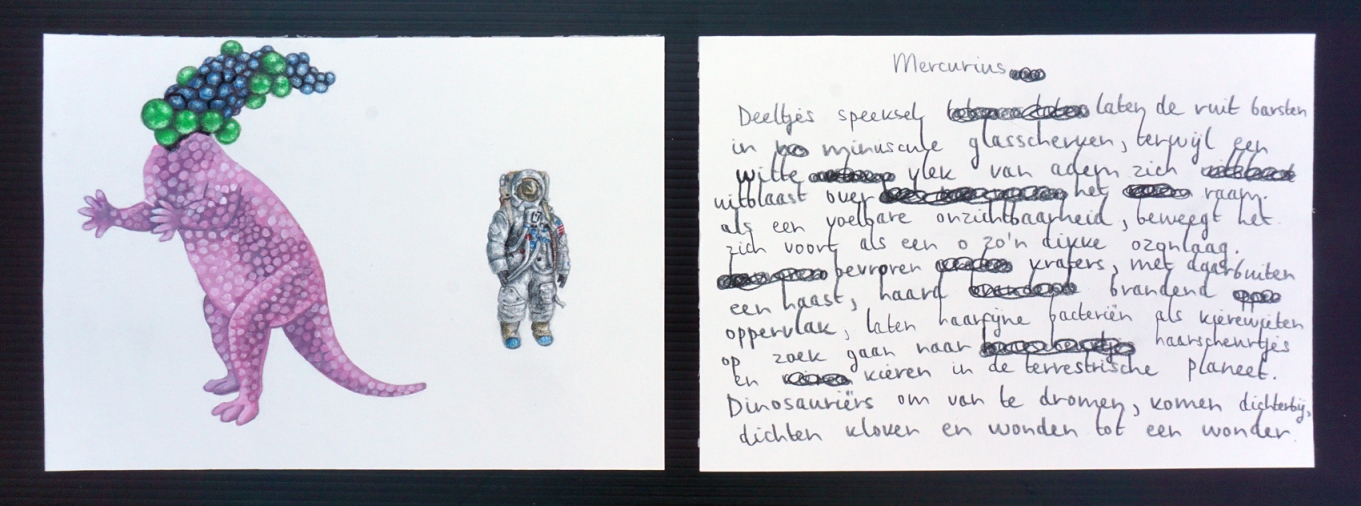 Mercurius
Deeltjes speeksel laten de ruit barsten
in minuscule glasscherven, terwijl een
witte vlek van adem zich
uitblaast over het raam.
als een voelbare onzichtbaarheid, beweegt het
zich voort als een o zo'n dikke ozonlaag.
bevroren kraters, met daarbuiten
een haast, haard brandend
oppervlak, laten haarfijne bacteriën als kierewieten
op zoek gaan naar haarscheurtjes
en kieren in de terrestrische planeet.
Dinosauriërs om van te dromen, komen dichterbij,
dichten kloven en wonden tot een wonder.